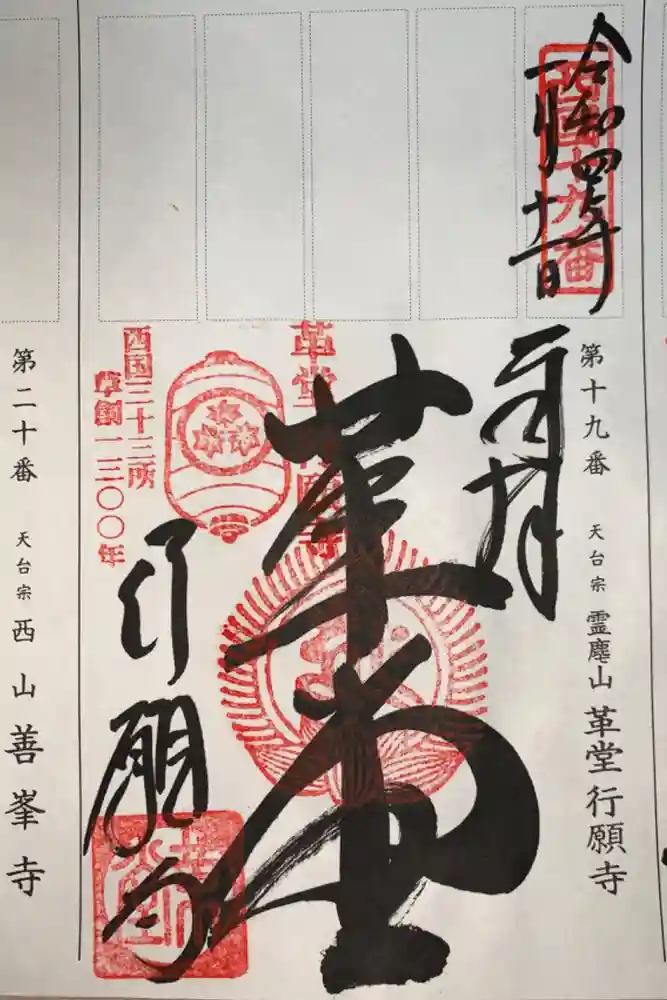 令和四年
一月十一日
西國十九番
第十九番 天台宗 霊麀山 革堂行願寺
奉拝
革堂
革堂行願寺
行願寺
西国三十三所
草創一三〇〇年
第二十番 天台宗 西山善峯寺